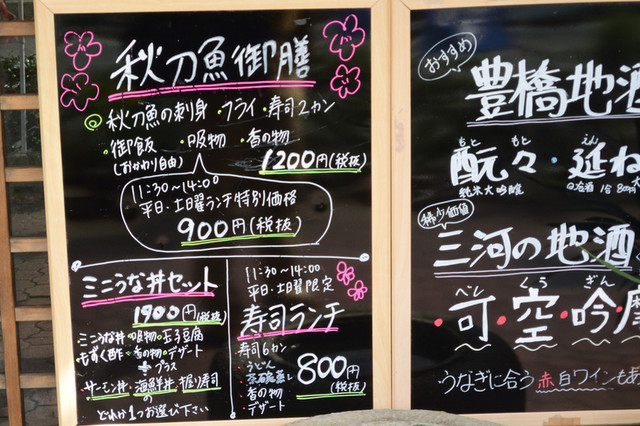 秋刀魚御膳
秋刀魚の刺身・フライ・寿司2カン
・御飯・吸物・香の物
(おかわり自由)
1200円(税抜)
11:30~14:00
平日・土曜ランチ特別価格
900円(税抜)
ミニうな丼セット
1900円(税抜)
ミニうな丼・吸物・玉子豆腐
もずく酢・香の物・デザート
プラス
・サーモン丼・海鮮丼・握り寿司の
どれか1つお選び下さい
11:30~14:00
平日・土曜限定
寿司ランチ
・寿司6カン
・うどん
・茶碗蒸し
・香の物
・デザート
800円
(税抜)
おすすめ
豊橋地酒
もと もと えん
酛々・延ね
純米大吟醸
冷酒 1合 80
稀少価値
三河の地酒
べし くう ぎん
・可・空・吟・
・うなぎに合う赤白ワインもあ